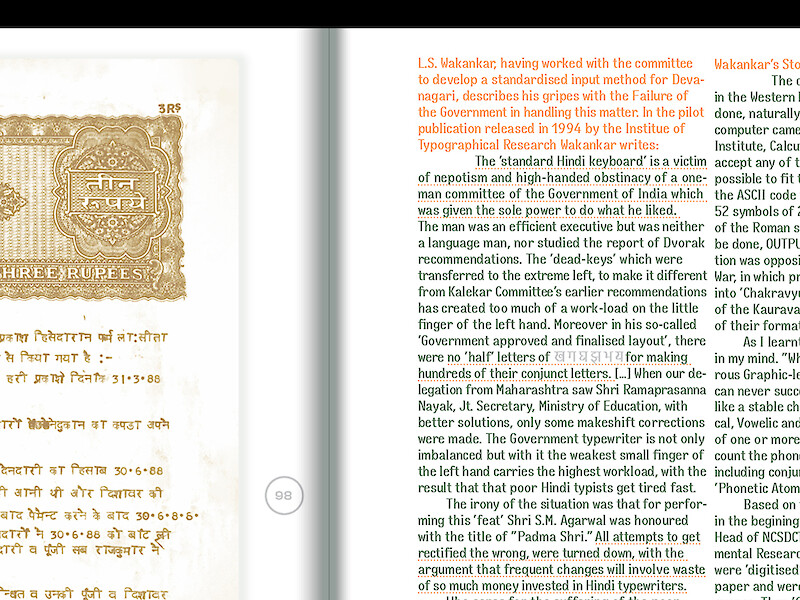 3RS
तीन
रुपये
THREE RUPEES
प्रकाश हिसेदारान फर्म ला:सीता
से किया गया है :-
हरी प्रकाश दिनांक 31•3•88
का कपडा अपने
देनदारी का हिसाब 30•6•88
आनी थी और दिशावर की
बाद पैमेन्ट करने के बाद 30•6•8•
ने 30•6•88 को बांट
दारी व पूंजी सब राजकुमार ने
व उनकी पूंजी व दिशावर
98
L.S. Wakankar, having worked with the committee
to develop a standardised input method for Deva-
nagari, describes his gripes with the Failure of
the Government in handling this matter. In the pilot
publication released in 1994 by the Institue of
Typographical Research Wakankar writes:
The 'standard Hindi keyboard' is a victim
of nepotism and high-handed obstinacy of a one-
man committee of the Government of India which
was given the sole power to do what he liked.
The man was an efficient executive but was neither
a language man, nor studied the report of Dvorak
recommendations. The 'dead-keys' which were
transferred to the extreme left, to make it different
from Kalekar Committee's earlier recommendations
has created too much of a work-load on the little
finger of the left hand. Moreover in his so-called
'Government approved and finalised layout', there
were no 'half' letters of ख ग घ झ भ य for making
hundreds of their conjunct letters. [...] When our de-
legation from Maharashtra saw Shri Ramaprasanna
Nayak, Jt. Secretary, Ministry of Education, with
better solutions, only some makeshift corrections
were made. The Government typewriter is not only
imbalanced but with it the weakest small finger of
the left hand carries the highest workload, with the
result that that poor Hindi typists get tired fast.
The irony of the situation was that for perfor-
ming this 'feat' Shri S.M. Agarwal was honoured
with the title of "Padma Shri." All attempts to get
rectified the wrong, were turned down, with the
argument that frequent changes will involve waste
of so much money invested in Hindi typewriters.
Wakankar's Sto
The
in the Western
done, naturally
computer came
Institute, Calcu
accept any of t
possible to fit t
the ASCII code
52 symbols of
of the Roman s
be done, OUTPU
tion was opposi
War, in which pr
into 'Chakravyu
of the Kaurava
of their format
As I learnt
in my mind. "Wh
rous Graphic-le
can never succe
like a stable ch
cal, Vowelic and
of one or more
count the phon
including conju
'Phonetic Atom
Based on
in the begining
Head of NCSDCT
mental Researc
were 'digitised
paper and were